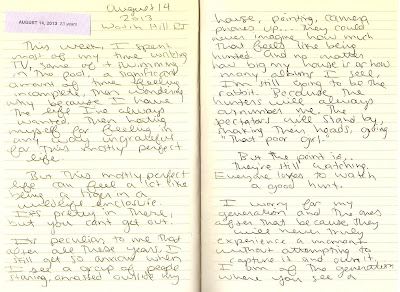 August 14
2013
Watch Hill RI
AUGUST 14, 2013 23 years
This week, I spent
most of my time watching
TV, some of it swimming
in the pool, a significant
amount of time feeling
incomplete, then wondering
why because I have
the life I've always
wanted. Then hating
myself for feeling in
any way ungrateful
for this mostly perfect
life.
But this mostly perfect
life can feel a lot like
being a tiger in a
wildlife enclosure.
It's pretty in there,
but you can't get out.
It's peculiar to me that
after all these years, I
still get so anxious when
I see a group of people
staring, amassed outside my
house, pointing, camera
phones up... they could
never imagine how much
that feels like being
hunted. And no matter
how big my house is or how
many albums I sell,
I'm still going to be the
rabbit. Because the
hunters will always
outnumber me. The
spectators will stand by,
shaking their heads, going
"that poor girl."
But the point is...
they're still watching.
Everyone loves to watch
a good hunt.
I worry for my
generation and the ones
after that because they
will never truly
experience a moment
without attempting to
capture it and own it.
I am of the generation
where you see a